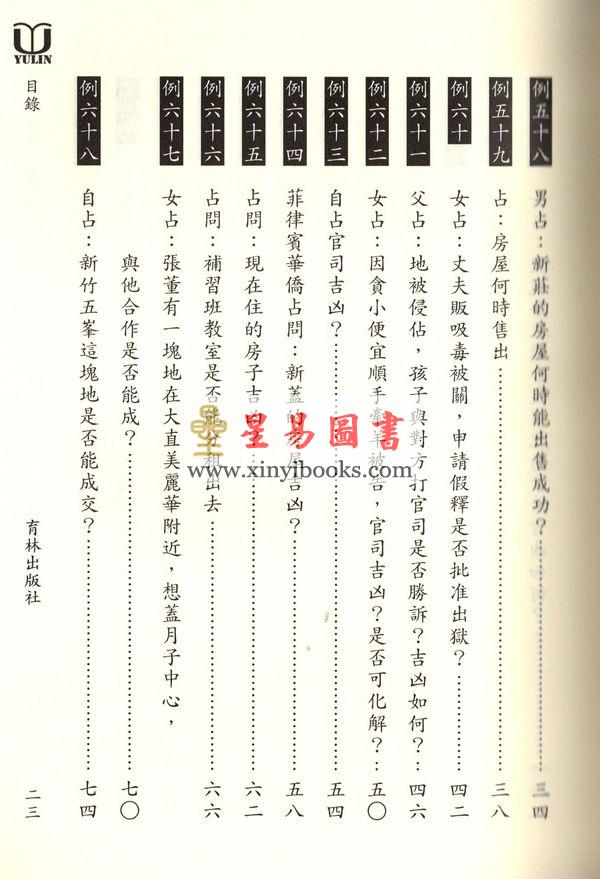 例五十八 男占：新莊的房屋何時能出售成功？……三四
例五十九 占：房屋何時售出……三八
例六十 女占：丈夫販吸毒被關，申請假釋是否批准出獄？……四二
例六十一 父占：地被侵佔，孩子與對方打官司是否勝訴？吉凶如何？…四六
例六十二 女占：因貪小便宜順手牽羊被告，官司吉凶？是否可化解？…五〇
例六十三 自占官司吉凶？……五四
例六十四 菲律賓華僑占問：新蓋的房屋吉凶？……五八
例六十五 占問：現在住的房子吉凶……六二
例六十六 占問：補習班教室是否能分租出去……六六
例六十七 女占：張董有一塊地在大直美麗華附近，想蓋月子中心，
與他合作是否能成？……七〇
例六十八 自占：新竹五峯這塊地是否能成交？……七四
YULIN
目錄
育林出版社
二三
星易圖書
www.xinyibooks.com